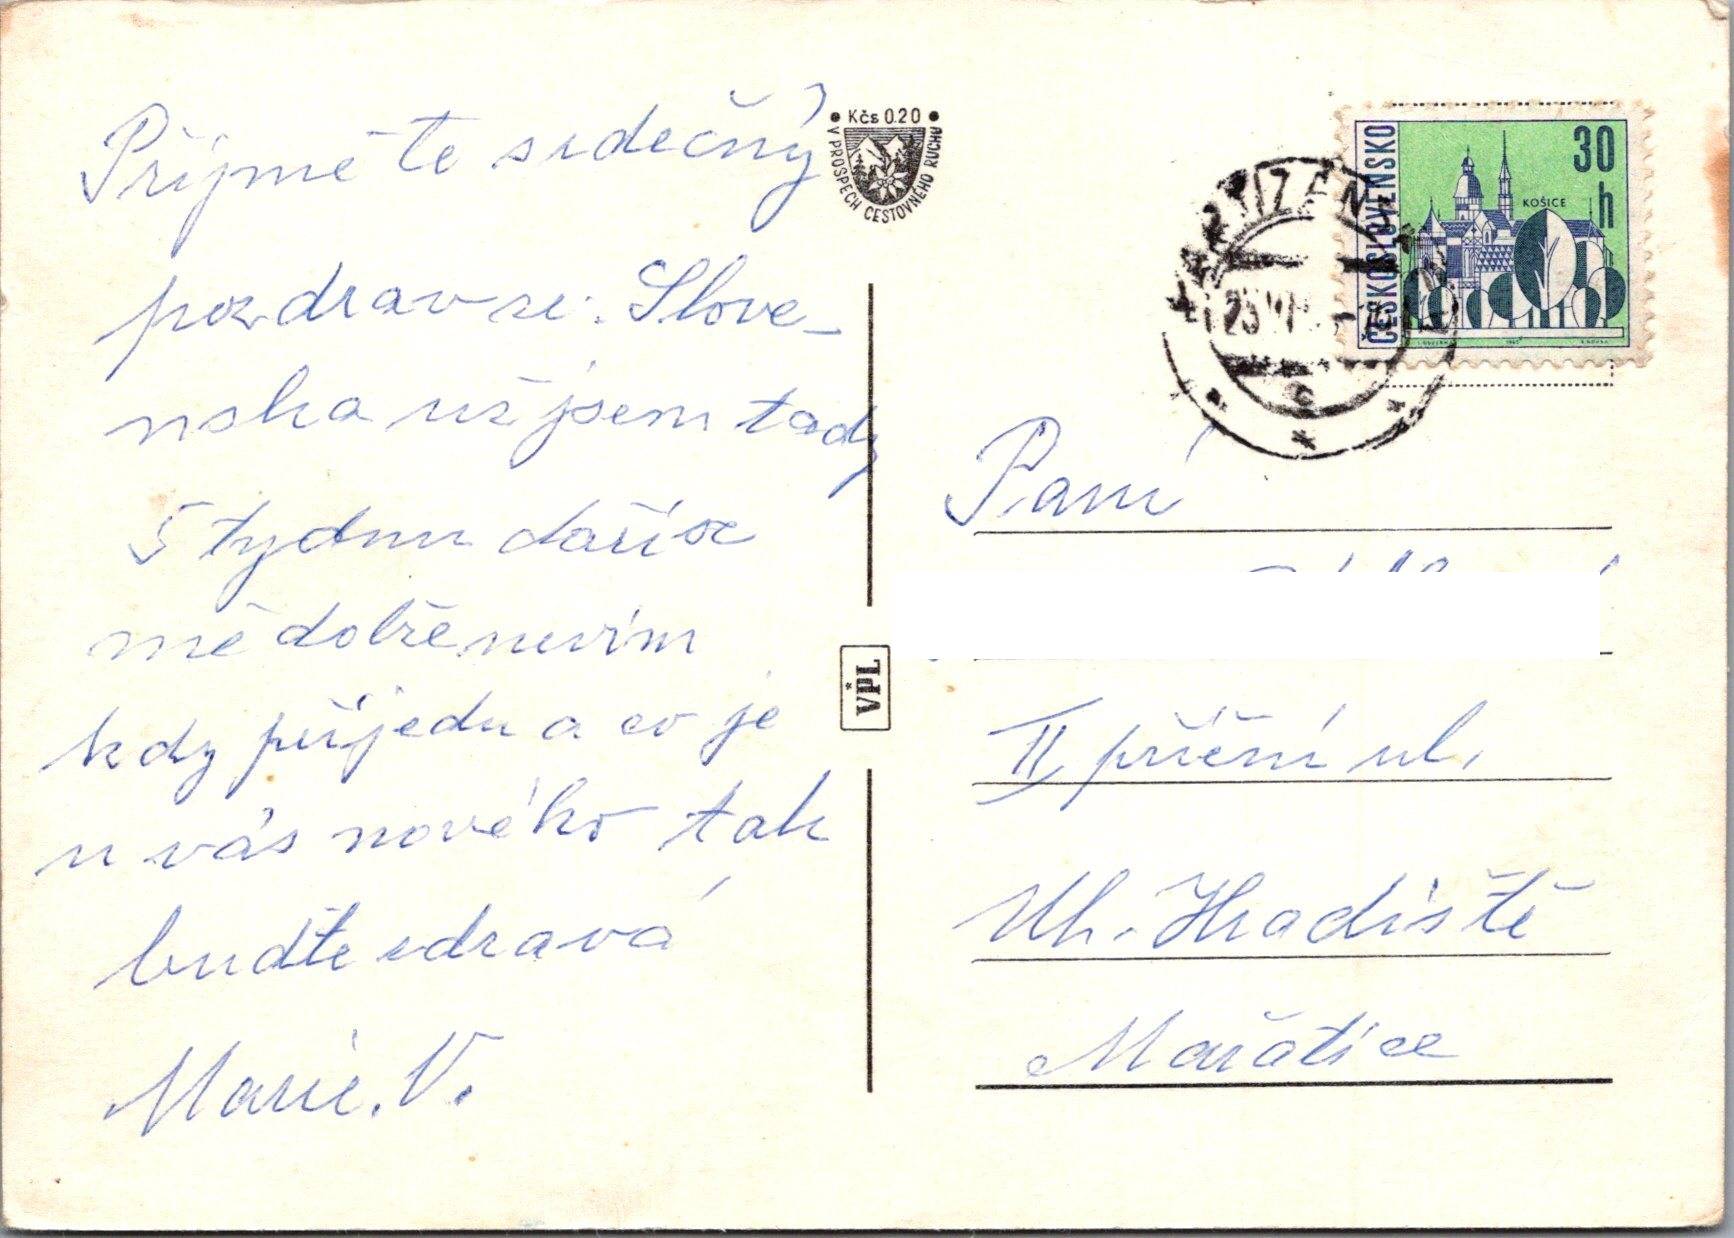 Příjměte srdečný
pozdrav ze Slove-
nska už jsem tady
5 tydnu daří se
mě dobře nevím
kdy přijedu a co je
u vás nového tak
buďte zdravá
Marie. V.
Kčs 0.20
V PROSPECH CESTOVNÉHO RUCHU
VPL
ČESKOSLOVENSKO
30
h
KOŠICE
PARTIZÁN
c
Paní
II příční ul.
Uh. Hradiště
Mařatice